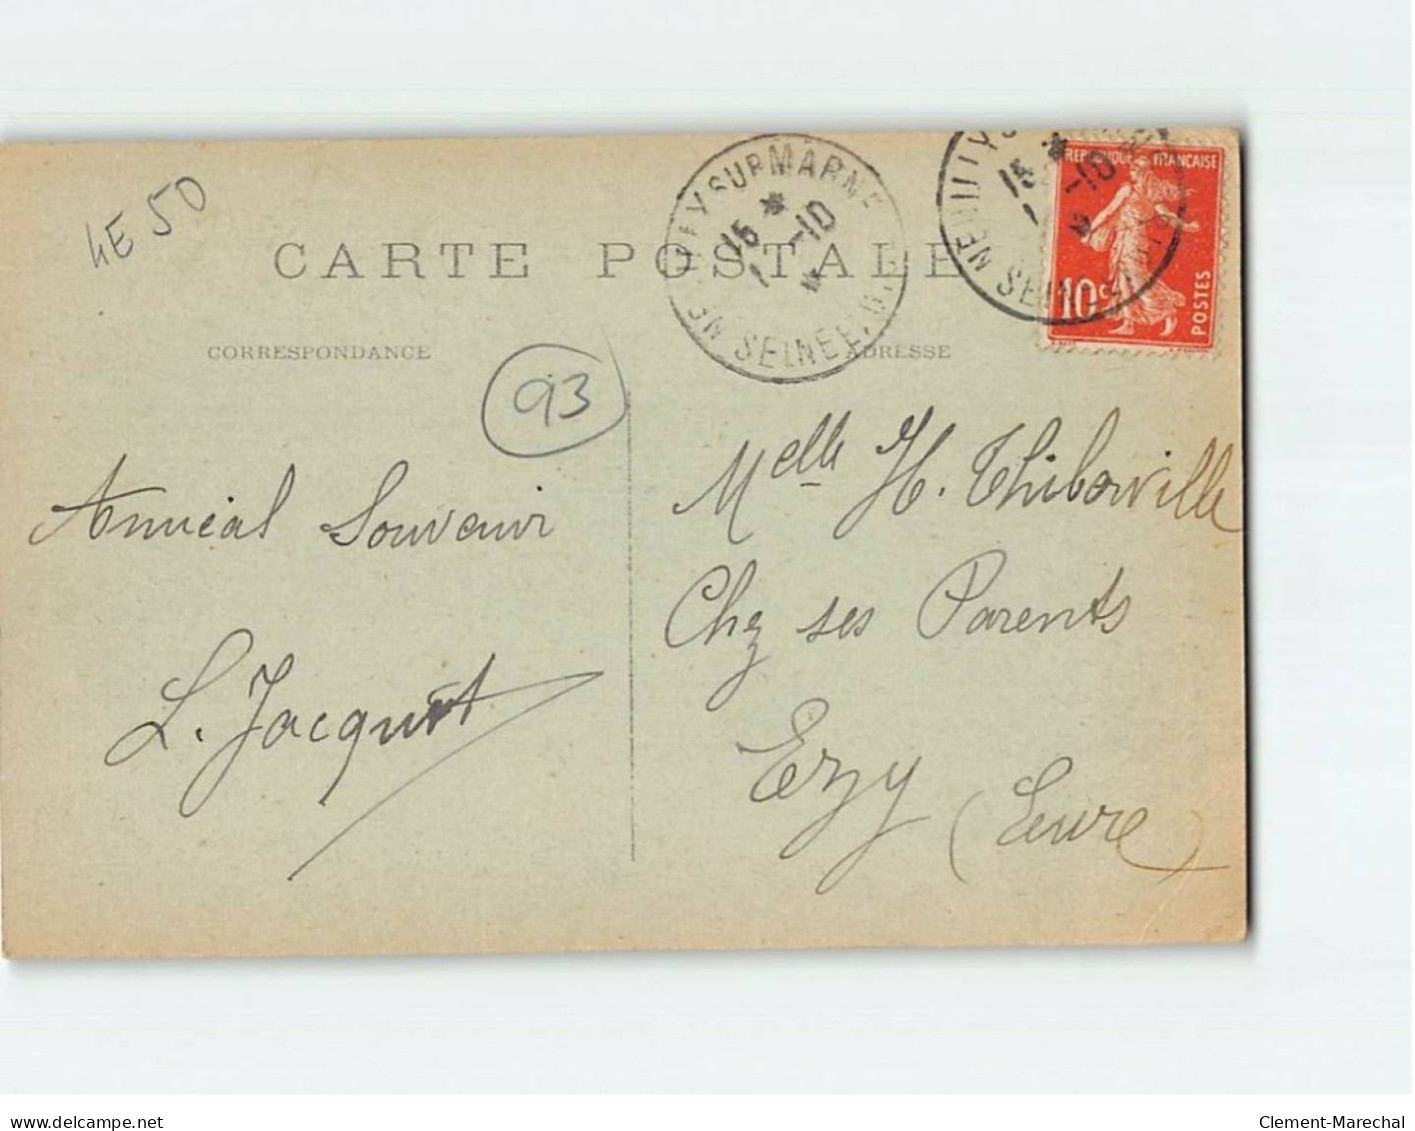 4E50
CARTE POSTALE
CORRESPONDANCE
ADRESSE
93
NEUILLY SUR MARNE
15 *
-10
*
SEINE ET
NEUILLY S
15 *
-10
*
SEINE
REPUBLIQUE FRANÇAISE
10c
POSTES
Amical Souvenir
L. Jacquot
Melle H. Thibouville
Chez ses Parents
Ezy (Eure)
www.delcampe.net
Clement-Marechal